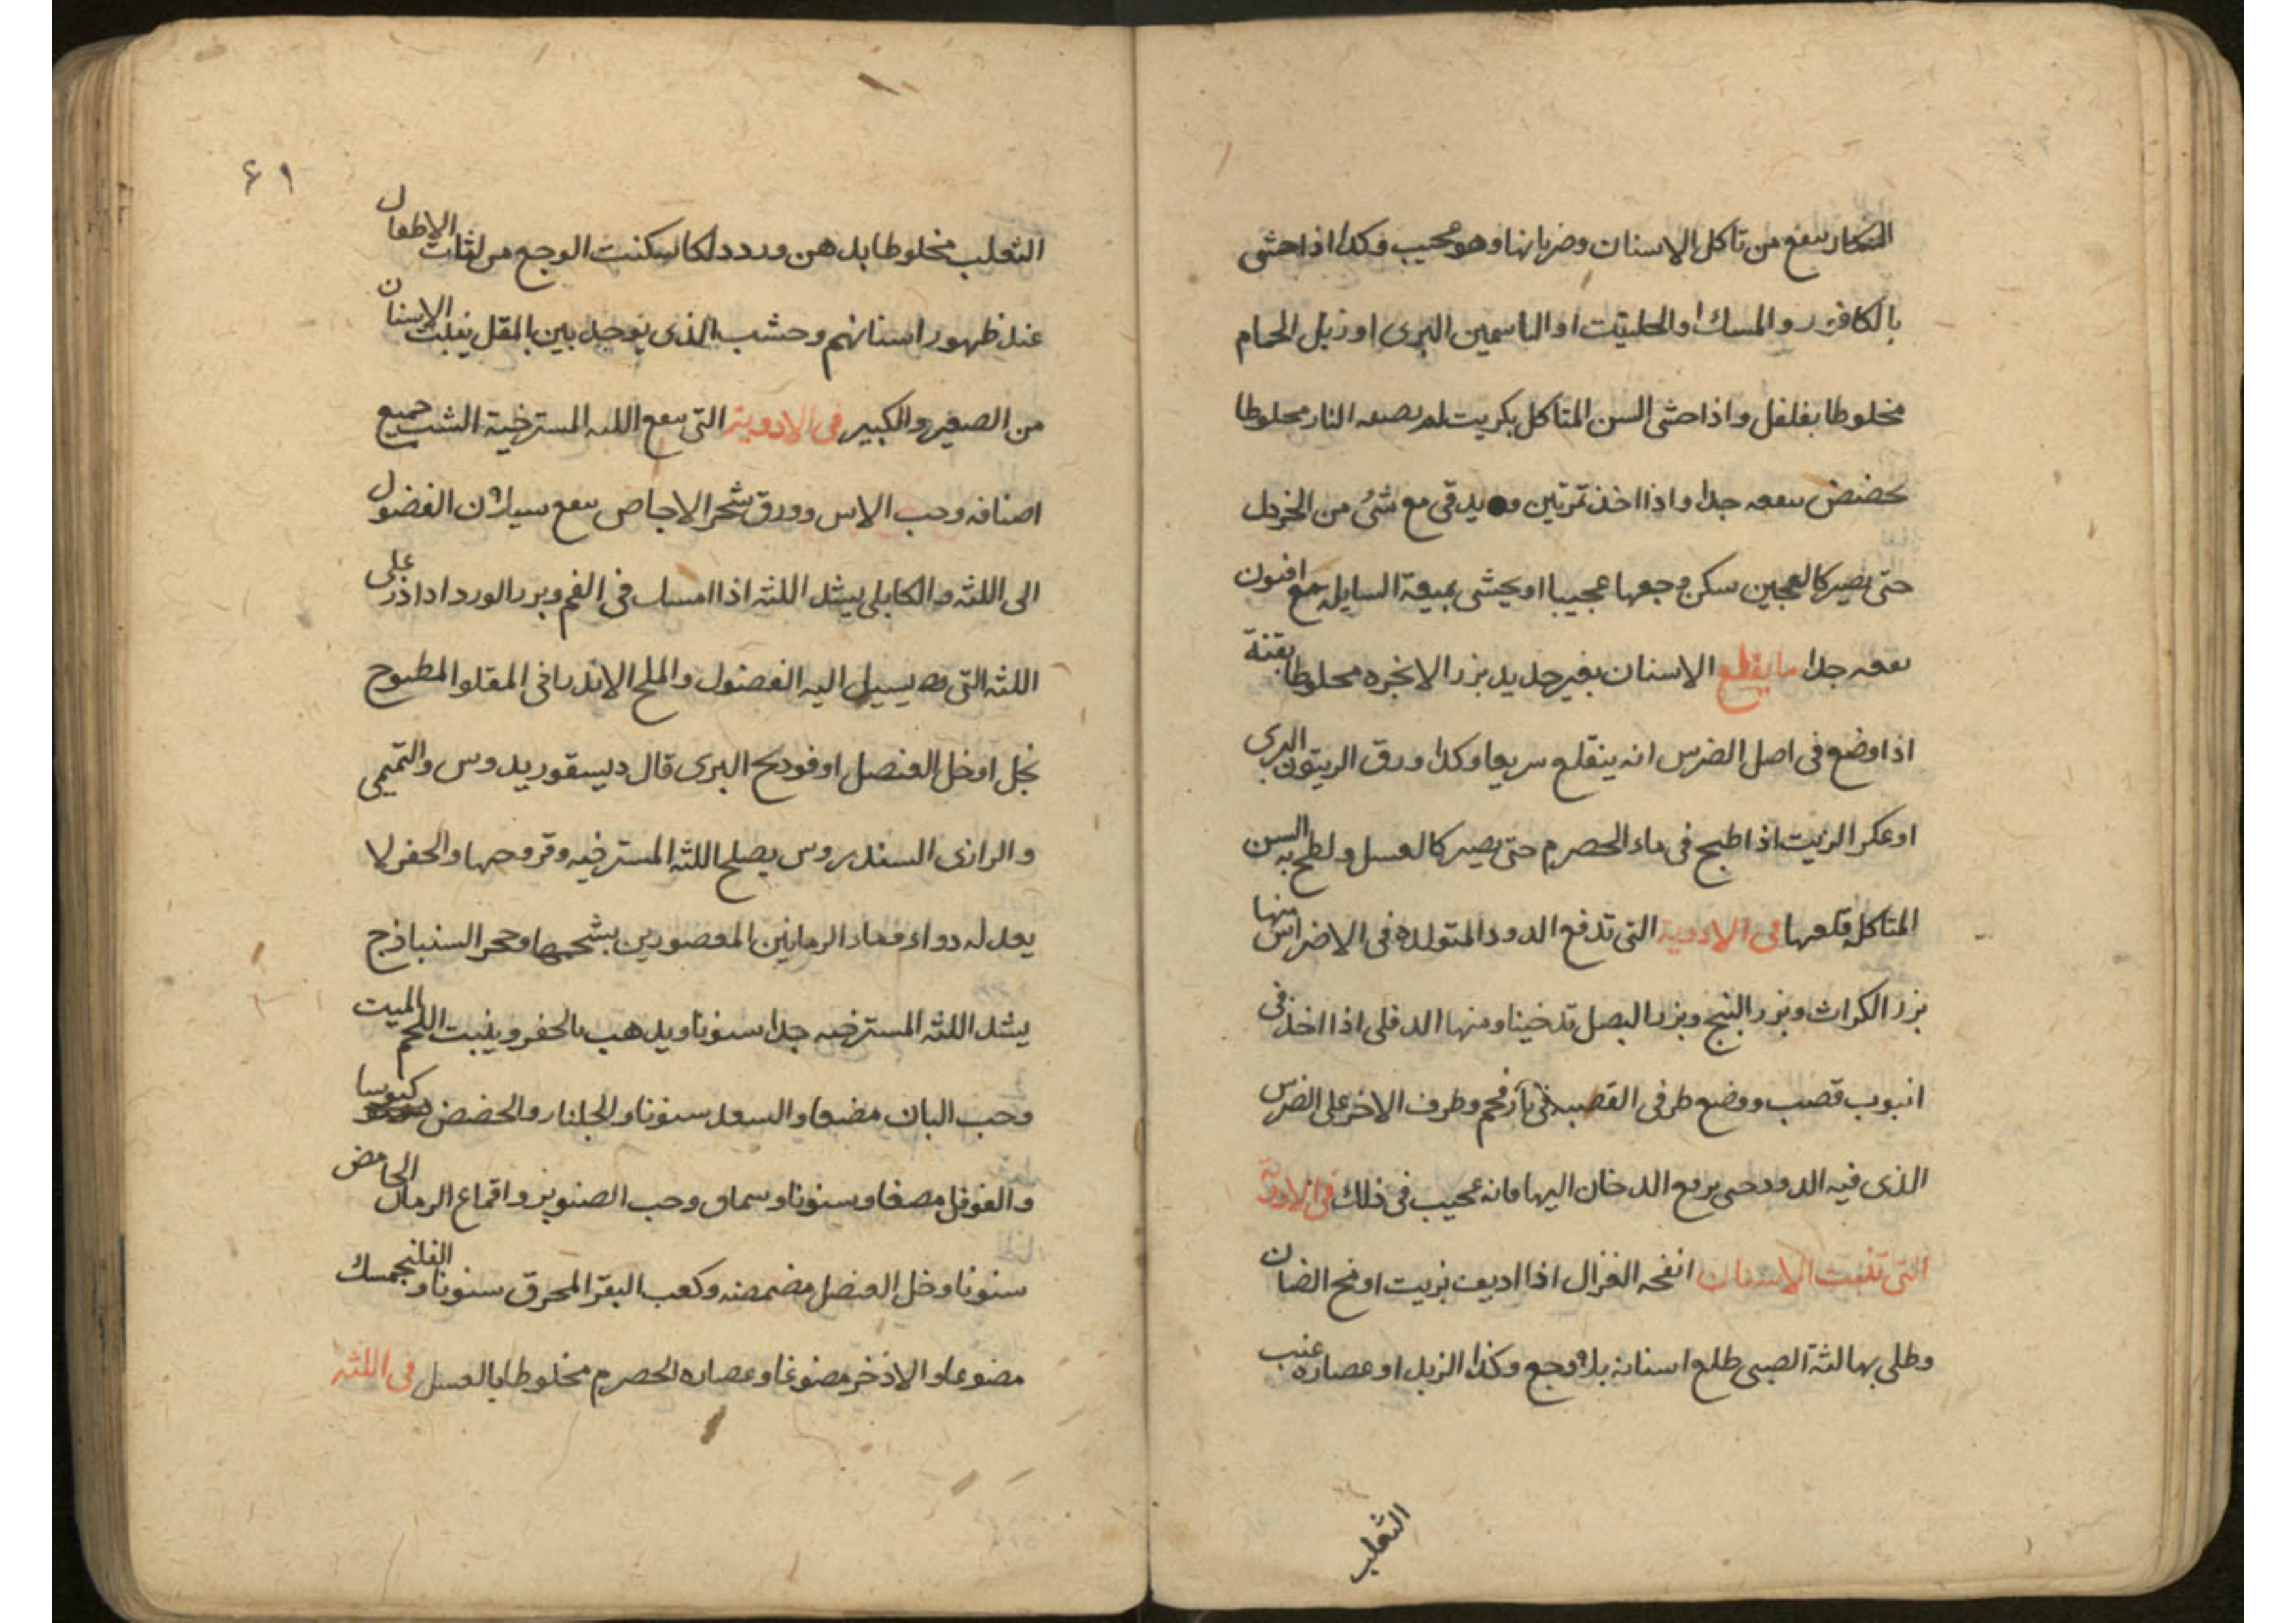 التنكار ينفع من تاكل الاسنان وضربانها وهو مجيب وكذا اذا حشى
بالكافور والمسك او الحلتيت او الياسمين البرى او زبل الحمام
مخلوطا بفلفل واذا حشى السن المتاكل بكبريت لم يصبه النار مخلوطا
بحضض ينفعه جدا واذا اخذ تمرتين ويدقى مع شئ من الخردل
حتى يصير كالعجين سكن وجعها عجيبا او يحشى بميعة السايله مع افيون
نفعه جدا ما يقلع الاسنان بغير حديد بزر الانجره مخلوطا بقنة
اذا وضع فى اصل الضرس انه ينقلع سريعا وكذا ورق الزيتون البرى
او عكر الزيت اذا طبخ فى ماء الحصرم حتى يصير كالعسل ولطخ به السن
المتاكله قلعها فى الادوية التى تدفع الدود المتولده فى الاضراس منها
بزر الكراث وبزر البنج وبزر البصل تدخينا ومنها الدفلى اذا اخذ فى
انبوب قصب ووضع طرفى القصبه فى نار فحم وطرف الاخر على الضرس
الذى فيه الدود حتى يرفع الدخان اليها فانه عجيب فى ذلك فى الادوية
التى تنبت الاسنان انفحه الغزال اذا اديف بزيت او مخ الضان
وطلى بها لثة الصبى طلع اسنانه بلا وجع وكذا الزبد او عصاره عنب
الثعلب
٦١
الثعلب مخلوطا بدهن ورد دلكا سكنت الوجع من لثات الاطفال
عند ظهور اسنانهم وحشب الذى يوجد بين المقل ينبت الاسنان
من الصغير والكبير فى الادوية التى ينفع اللثه المسترخية الشب جميع
اصنافه وحب الاس وورق شجر الاجاص ينفع سيلان الفضول
الى اللثه والكابلى يشد اللثه اذا امسك فى الفم وبزر الورد اذا ذر على
اللثه التى يسيل اليه الفضول والملح الاندرانى المقلو المطبوح
بخل او خل العنصل او فودنج البرى قال ديسقوريدوس والتميمى
والرازى السندروس يصلح اللثه المسترخيه وقروحها والحفر لا
يعدله دواء وماء الرمانين المعصورين بشحمها وحجر السنباذج
يشد اللثه المسترخيه جدا سنونا ويدهب بالحفر وينبت اللحم الميت
وحب البان مضغا والسعد سنونا والجلنار والحضض كبوسا
والفوفل مصغا وسنونا وسماق وحب الصنوبر واقماع الرمان الحامض
سنونا وخل العنصل مضمضه وكعب البقر المحرق سنونا والفلنجمسك
مضوعا والاذخر مضوغا وعصاره الحصرم مخلوطا بالعسل فى اللثه